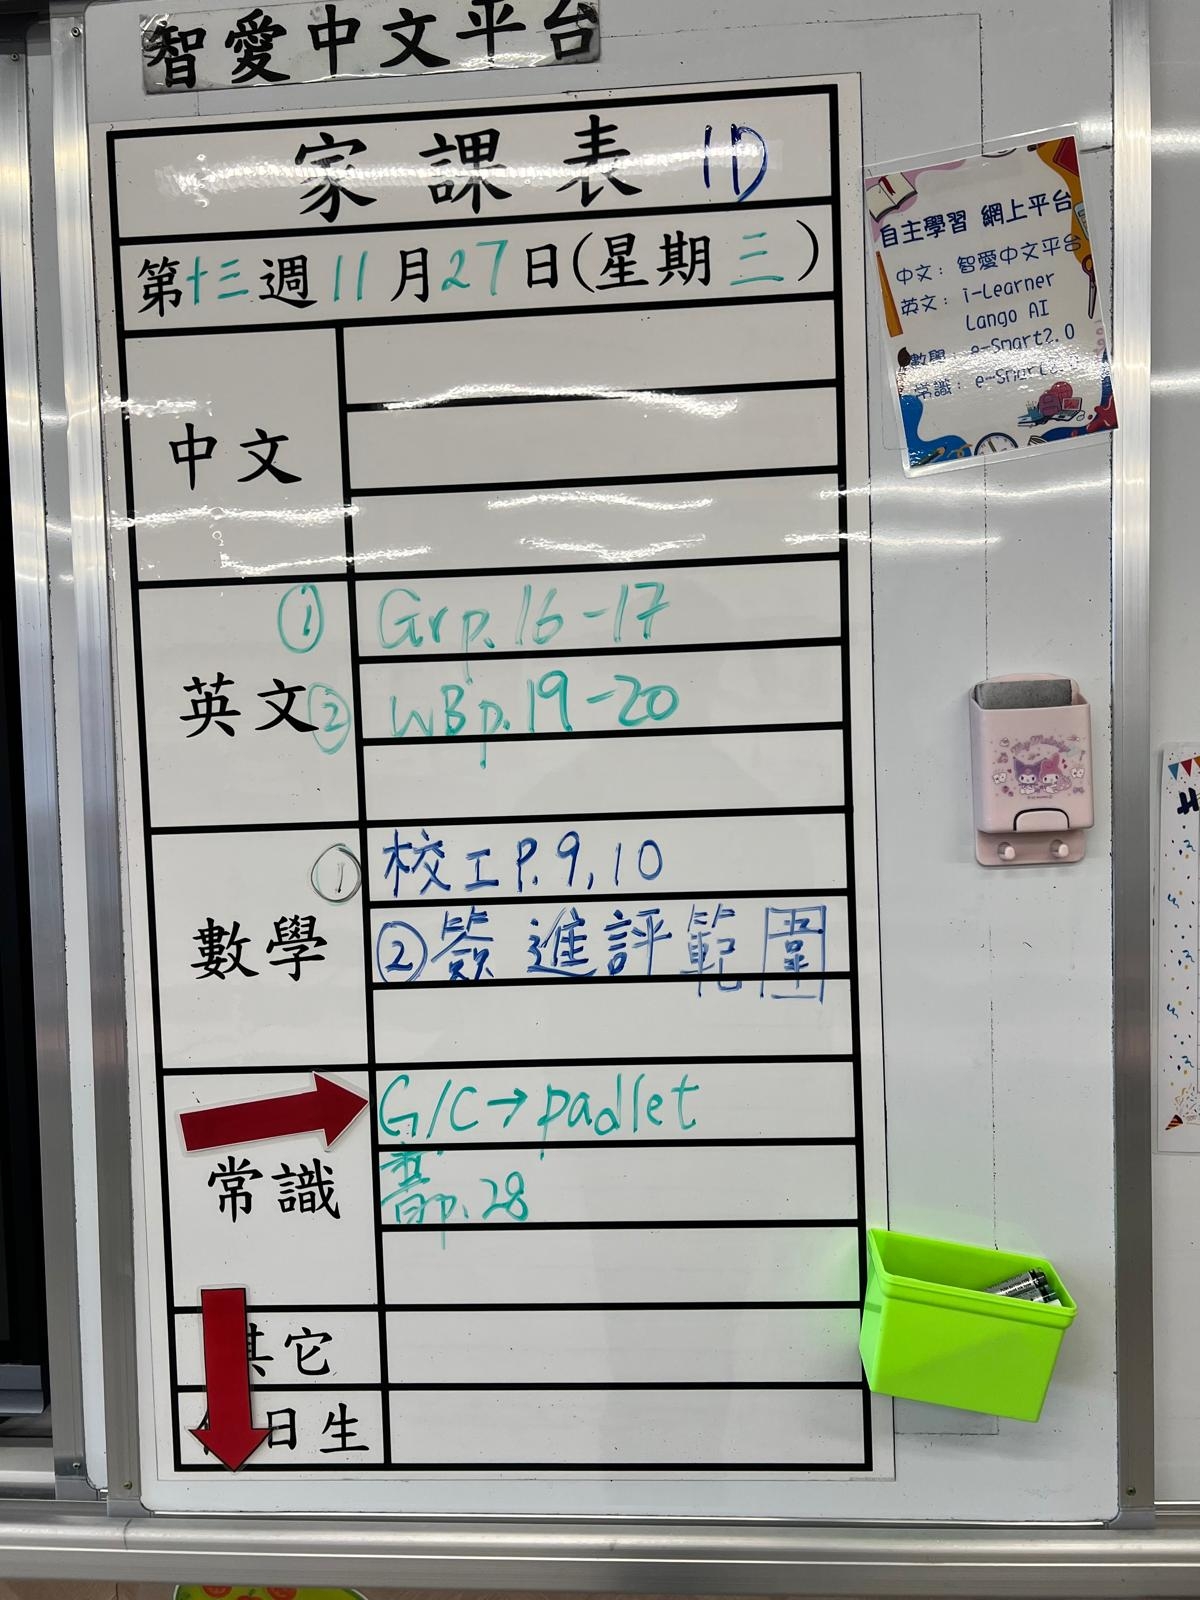 智愛中文平台
家課表 1D
第十三週11月27日(星期三)
中文
英文
① Gr p.16-17
② WB p.19-20
數學
① 校工P.9,10
② 簽進評範圍
常識
G/C→padlet
書p.28
其它
日生
自主學習 網上平台
中文：智愛中文平台
英文：i-Learner
Lango AI
數學：e-Smart2.0
常識：e-Smart2.0
My Melody